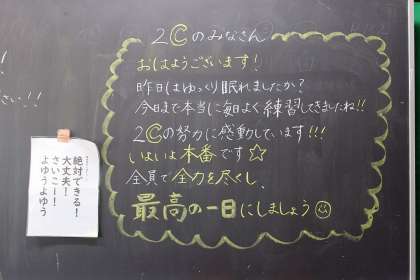 2Cのみなさん
おはようございます!
昨日はゆっくり眠れましたか?
今日まで本当に毎日よく練習してきましたね!!
2Cの努力に感動しています!!!
いよいよ本番です☆
全員で全力を尽くし、
最高の一日にしましょう☺
さい!!
絶対できる!
大丈夫!
さいこー!
よゆうよゆう